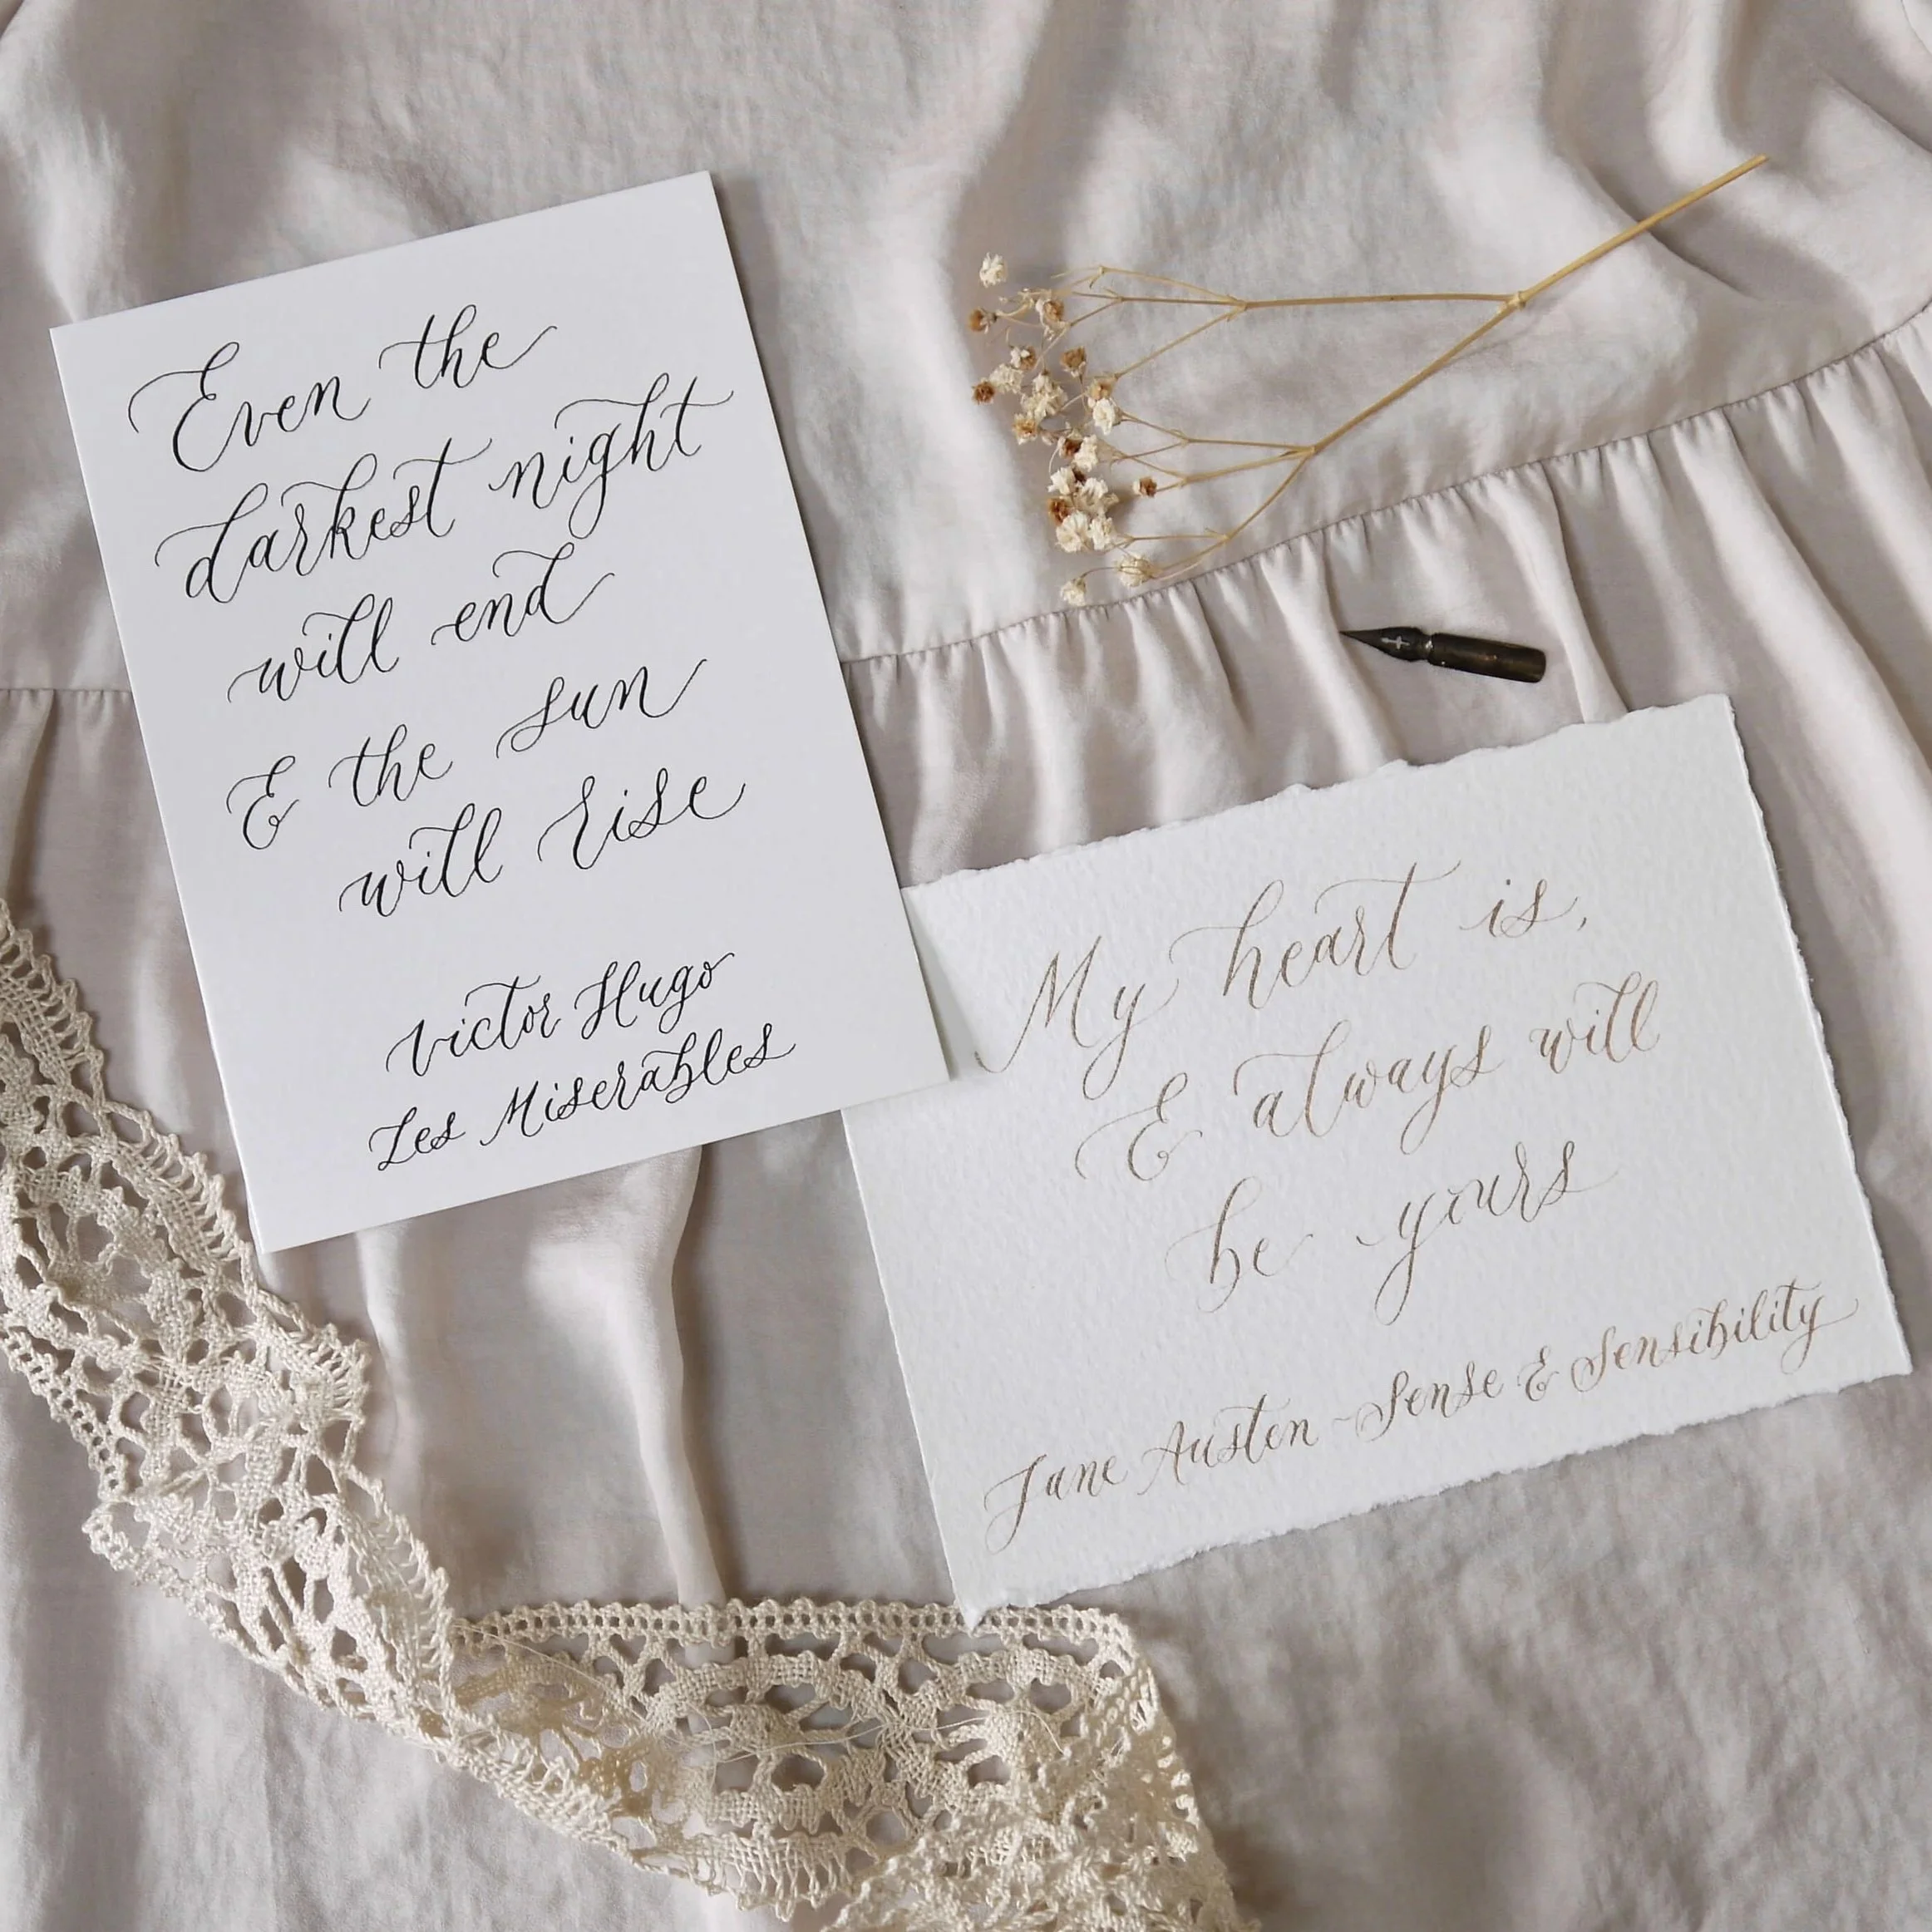 Even the
darkest night
will end
& the sun
will rise
Victor Hugo
Les Miserables
My heart is,
& always will
be yours
Jane Austen - Sense & Sensibility